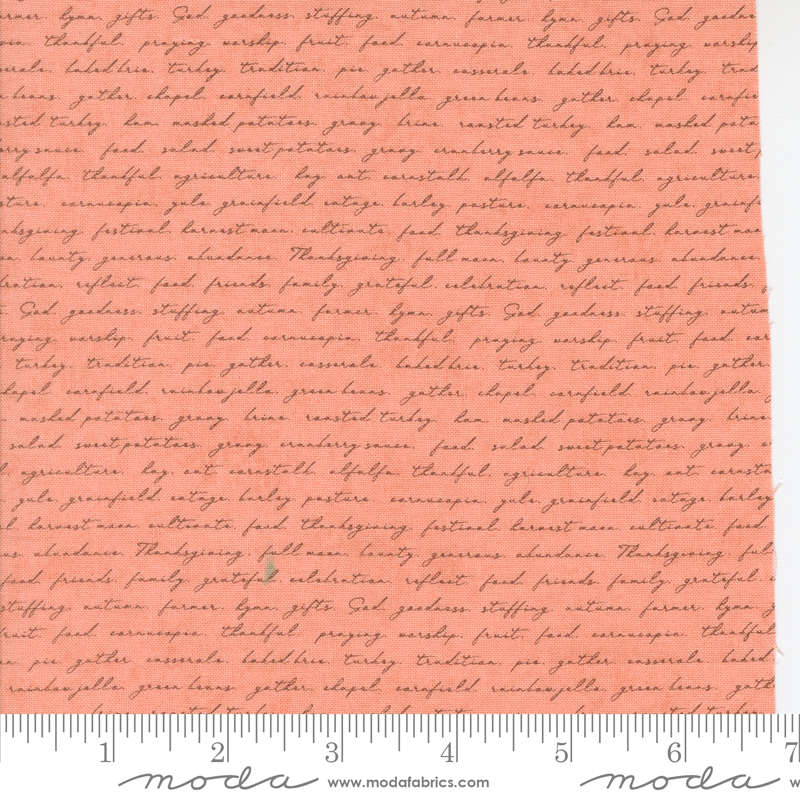 farmer. hymn. gifts. God. goodness. stuffing. autumn. farmer. hymn. gifts. God. goodne
thankful. praying. worship. fruit. food. cornucopia. thankful. praying. worship
baked brie. turkey. tradition. pie. gather. casserole. baked brie. turkey. trad
beans. gather. chapel. cornfield. rainbow jello. green beans. gather. chapel. cornfie
sted turkey. ham. mashed potatoes. gravy. brine. roasted turkey. ham. mashed pota
rry sauce. food. salad. sweet potatoes. gravy. cranberry sauce. food. salad. sweet p
alfalfa. thankful. agriculture. hay. oat. cornstalk. alfalfa. thankful. agriculture.
sture. cornucopia. yule. grainfield. cotage. barley. pasture. cornucopia. yule. grainf
nksgiving. festival. harvest moon. cultivate. food. thanksgiving. festival. harvest moo
bounty. generous. abundance. Thanksgiving. full moon. bounty. generous. abundance.
bration. reflect. food. friends. family. grateful. celebration. reflect. food. friends.
God. goodness. stuffing. autumn. farmer. hymn. gifts. God. goodness. stuffing. autum
raying. worship. fruit. food. cornucopia. thankful. praying. worship. fruit. food. co
turkey. tradition. pie. gather. casserole. baked brie. turkey. tradition. pie. gather.
chapel. cornfield. rainbow jello. green beans. gather. chapel. cornfield. rainbow jello
mashed potatoes. gravy. brine. roasted turkey. ham. mashed potatoes. gravy. brine
salad. sweet potatoes. gravy. cranberry sauce. food. salad. sweet potatoes. gravy. c
agriculture. hay. oat. cornstalk. alfalfa. thankful. agriculture. hay. oat. cornsta
yule. grainfield. cotage. barley. pasture. cornucopia. yule. grainfield. cotage. barley
harvest moon. cultivate. food. thanksgiving. festival. harvest moon. cultivate. food
us. abundance. Thanksgiving. full moon. bounty. generous. abundance. Thanksgiving. ful
food. friends. family. grateful. celebration. reflect. food. friends. family. grateful. c
stuffing. autumn. farmer. hymn. gifts. God. goodness. stuffing. autumn. farmer. hymn. g
fruit. food. cornucopia. thankful. praying. worship. fruit. food. cornucopia. thankful
pie. gather. casserole. baked brie. turkey. tradition. pie. gather. casserole. baked
rainbow jello. green beans. gather. chapel. cornfield. rainbow jello. green beans. gath
1 2 3 4 5 6 7
moda www.modafabrics.com moda w